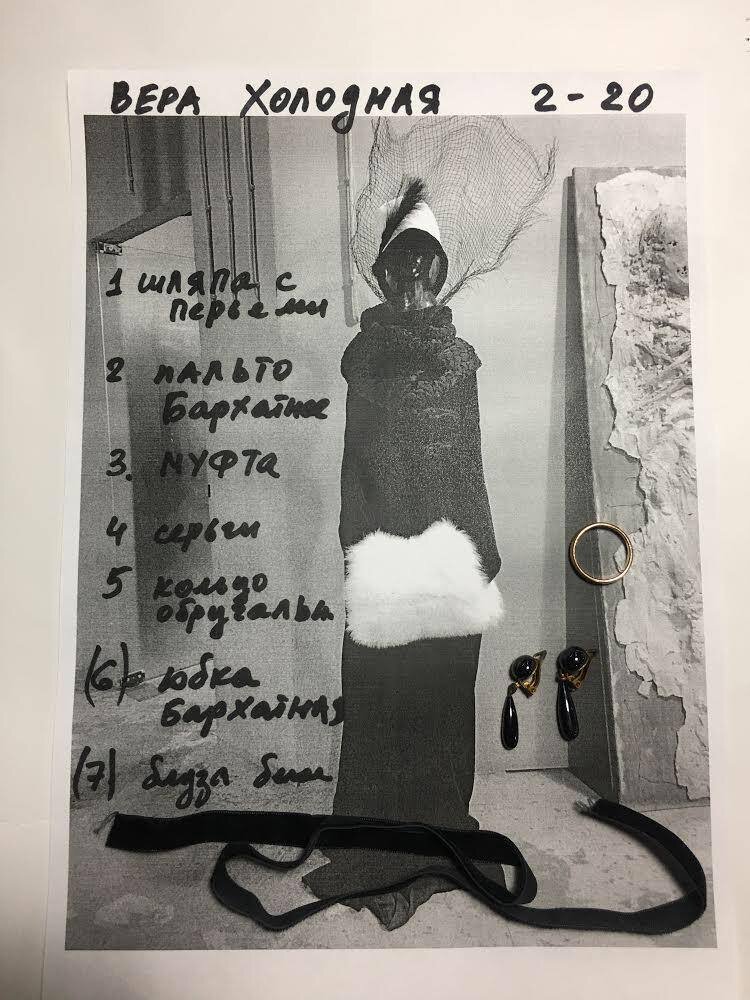 ВЕРА ХОЛОДНАЯ 2-20
1 шляпа с
перьеми
2 пальто
Бархатное
3. МУФТА
4 серьги
5 кольцо
обручальн
(6) юбка
Бархатная
(7) блуза